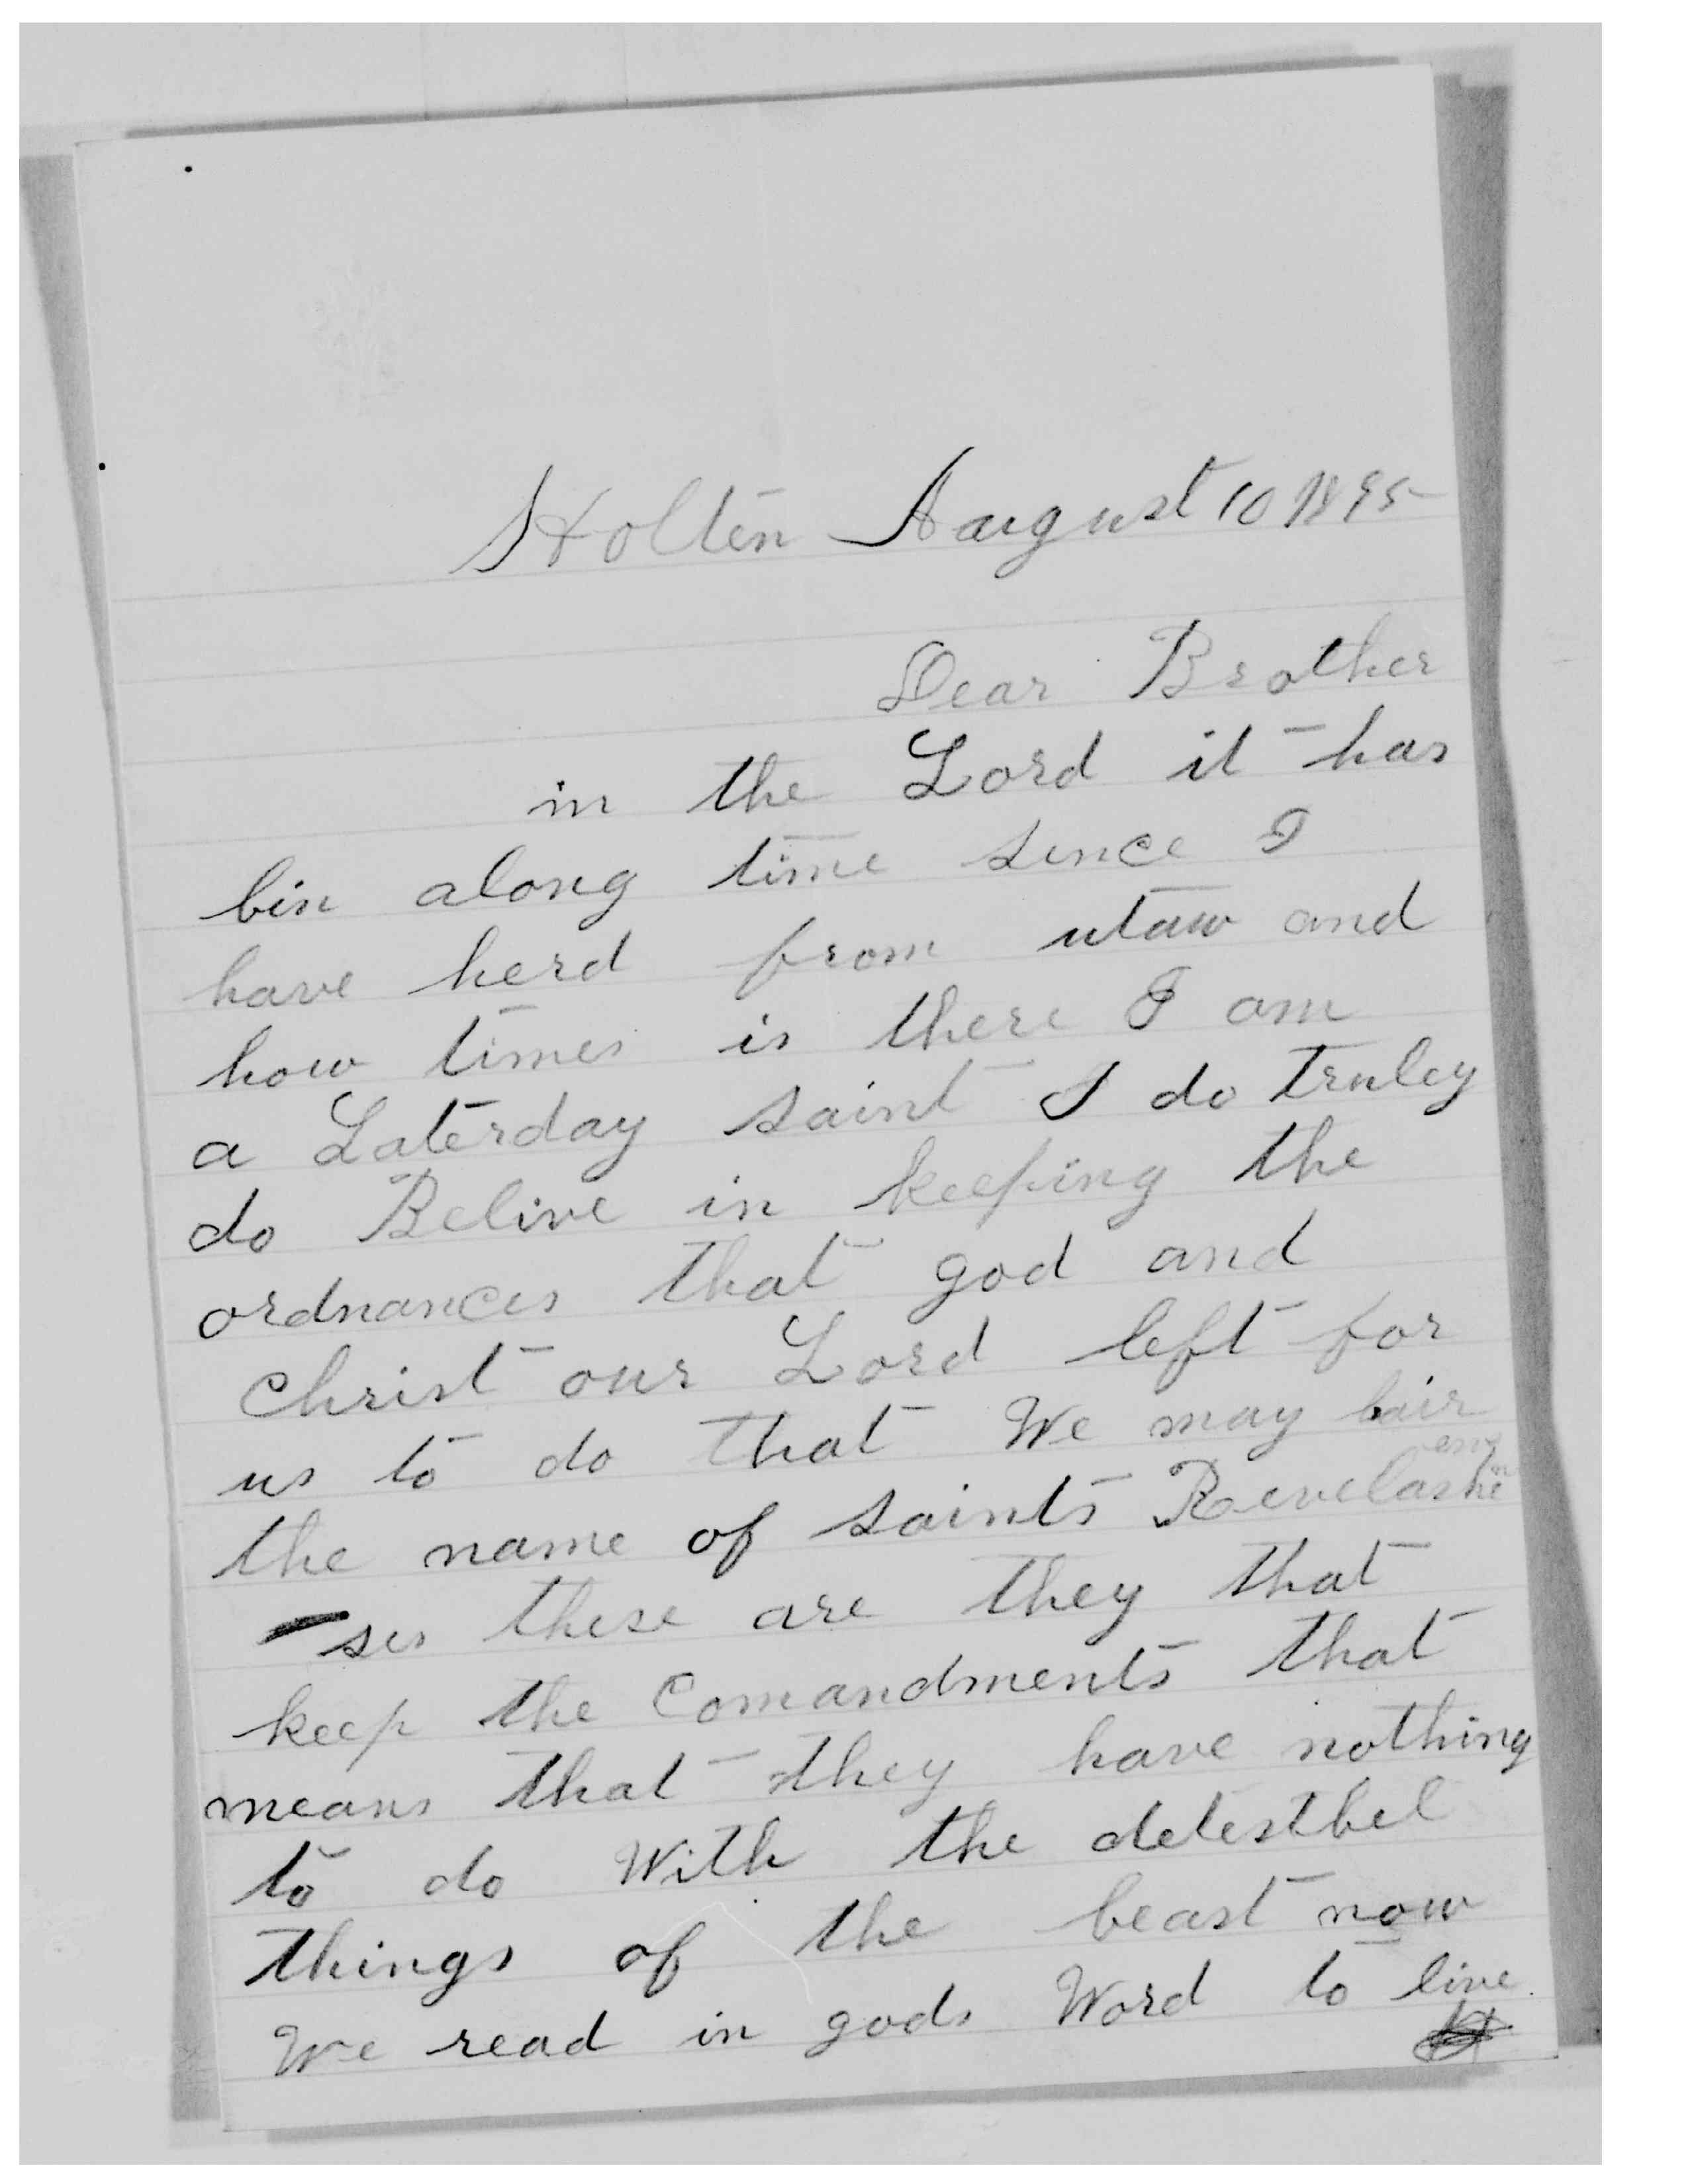 Holten August 10 1895
Dear Brother
in the Lord it has
bin along time since I
have herd from utaw and
how times is there I am
a Laterday saint I do truley
do Belive in keeping the
ordnances that god and
Christ our Lord left for
us to do that We may bair
the name of saints Revelashen
ses these are they that
keep the Comandments that
means that they have nothing
to do With the detestbel
things of the beast now
We read in gods Word to live